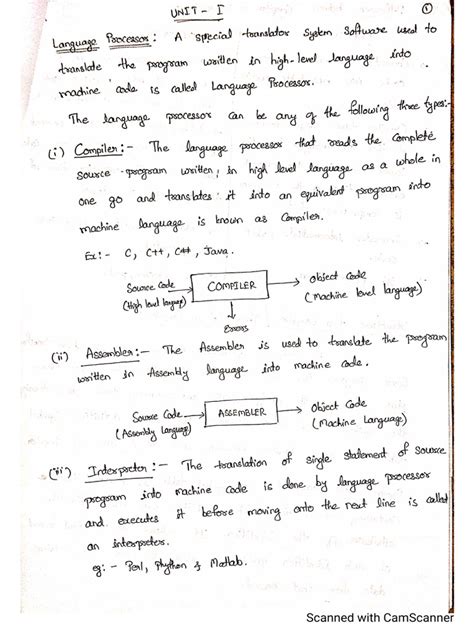 UNIT - I
①
Language Processor : A special translator System Software used to
translate the program written in high-level language into
machine code is called Language Processor.
The language processor can be any of the following three types:-
(i) Compiler :- The language processor that reads the complete
source program written in high level language as a whole in
one go and translates it into an equivalent program into
machine language is known as Compiler.
Ex:- C, C++, C#, Java.
Source Code → COMPILER → Object Code
(High level language) (Machine level language)
↓
Errors
(ii) Assembler :- The Assembler is used to translate the program
written in Assembly language into machine code.
Source Code → ASSEMBLER → Object Code
(Assembly Language) (Machine Language)
(iii) Interpreter :- The translation of single statement of source
program into machine code is done by language processor
and executes it before moving onto the next line is called
an interpreter.
eg: - Perl, Phython & Matlab.
Scanned with CamScanner